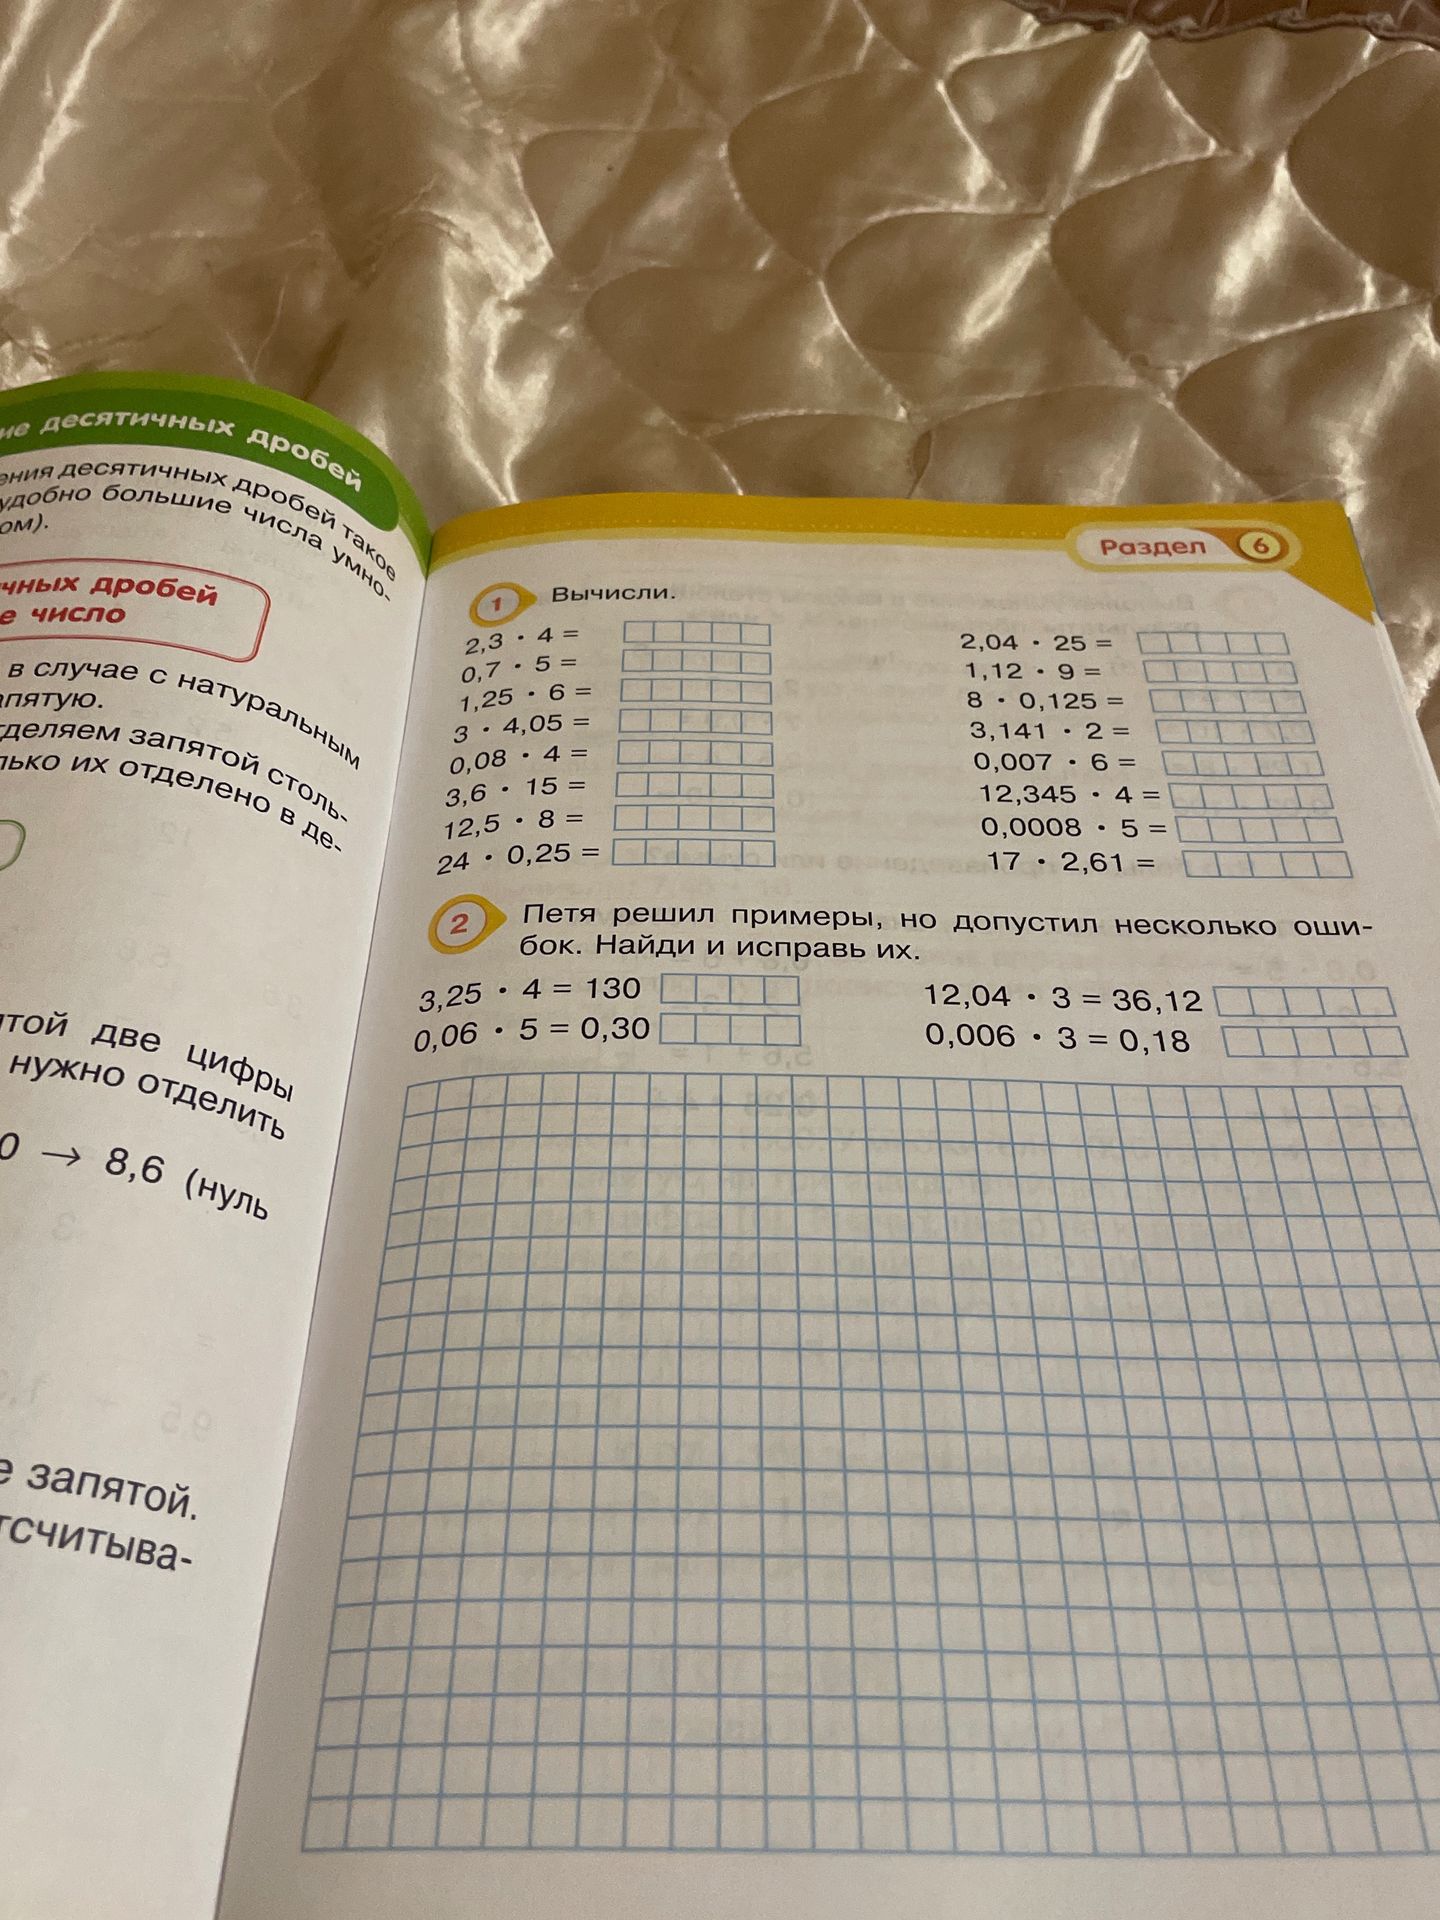 десятичных дробей
десятичных дробей такое
удобно большие числа умно-
дробей
число
в случае с натуральным
запятой столь-
их отделено в де-
две цифры
нужно отделить
→ 8,6 (нуль
запятой.
Раздел 6
1 Вычисли.
2,3 · 4 =
0,7 · 5 =
1,25 · 6 =
3 · 4,05 =
0,08 · 4 =
3,6 · 15 =
12,5 · 8 =
24 · 0,25 =
2,04 · 25 =
1,12 · 9 =
8 · 0,125 =
3,141 · 2 =
0,007 · 6 =
12,345 · 4 =
0,0008 · 5 =
17 · 2,61 =
2 Петя решил примеры, но допустил несколько оши-
бок. Найди и исправь их.
3,25 · 4 = 130
0,06 · 5 = 0,30
12,04 · 3 = 36,12
0,006 · 3 = 0,18